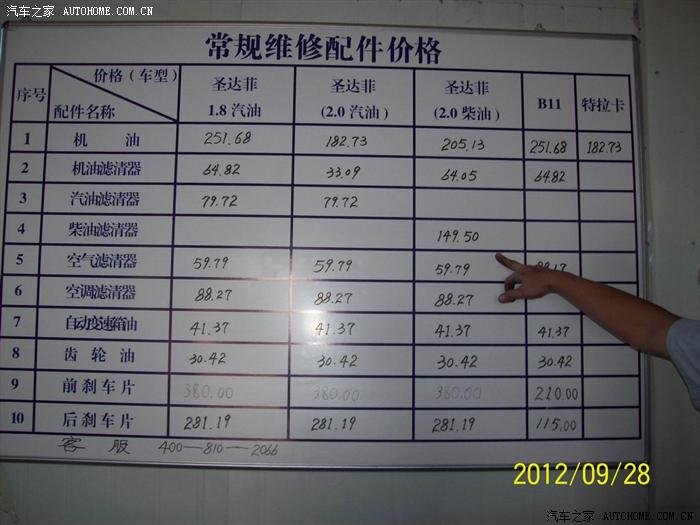 汽车之家 AUTOHOME.COM.CN
汽车之家 AUTOHOME.COM.CN
常规维修配件价格
序号 价格（车型） 配件名称 圣达菲 1.8 汽油 圣达菲 (2.0 汽油) 圣达菲 (2.0 柴油) B11 特拉卡
1 机油 251.68 182.73 205.13 251.68 182.73
2 机油滤清器 64.82 33.09 64.05 64.82
3 汽油滤清器 79.72 79.72
4 柴油滤清器 149.50
5 空气滤清器 59.79 59.79 59.79
6 空调滤清器 88.27 88.27 88.27
7 自动变速箱油 41.37 41.37 41.37 41.37
8 齿轮油 30.42 30.42 30.42 30.42
9 前刹车片 380.00 380.00 380.00 210.00
10 后刹车片 281.19 281.19 281.19 115.00
客服 400—810—2066
2012/09/28
汽车之家 AUTOHOME.COM.CN